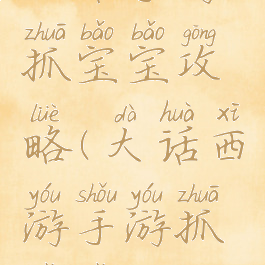 zhuā bǎo bǎo gōng
抓宝宝攻
lüè dà huà xī
略(大话西
yóu shǒu yóu zhuā
游手游抓